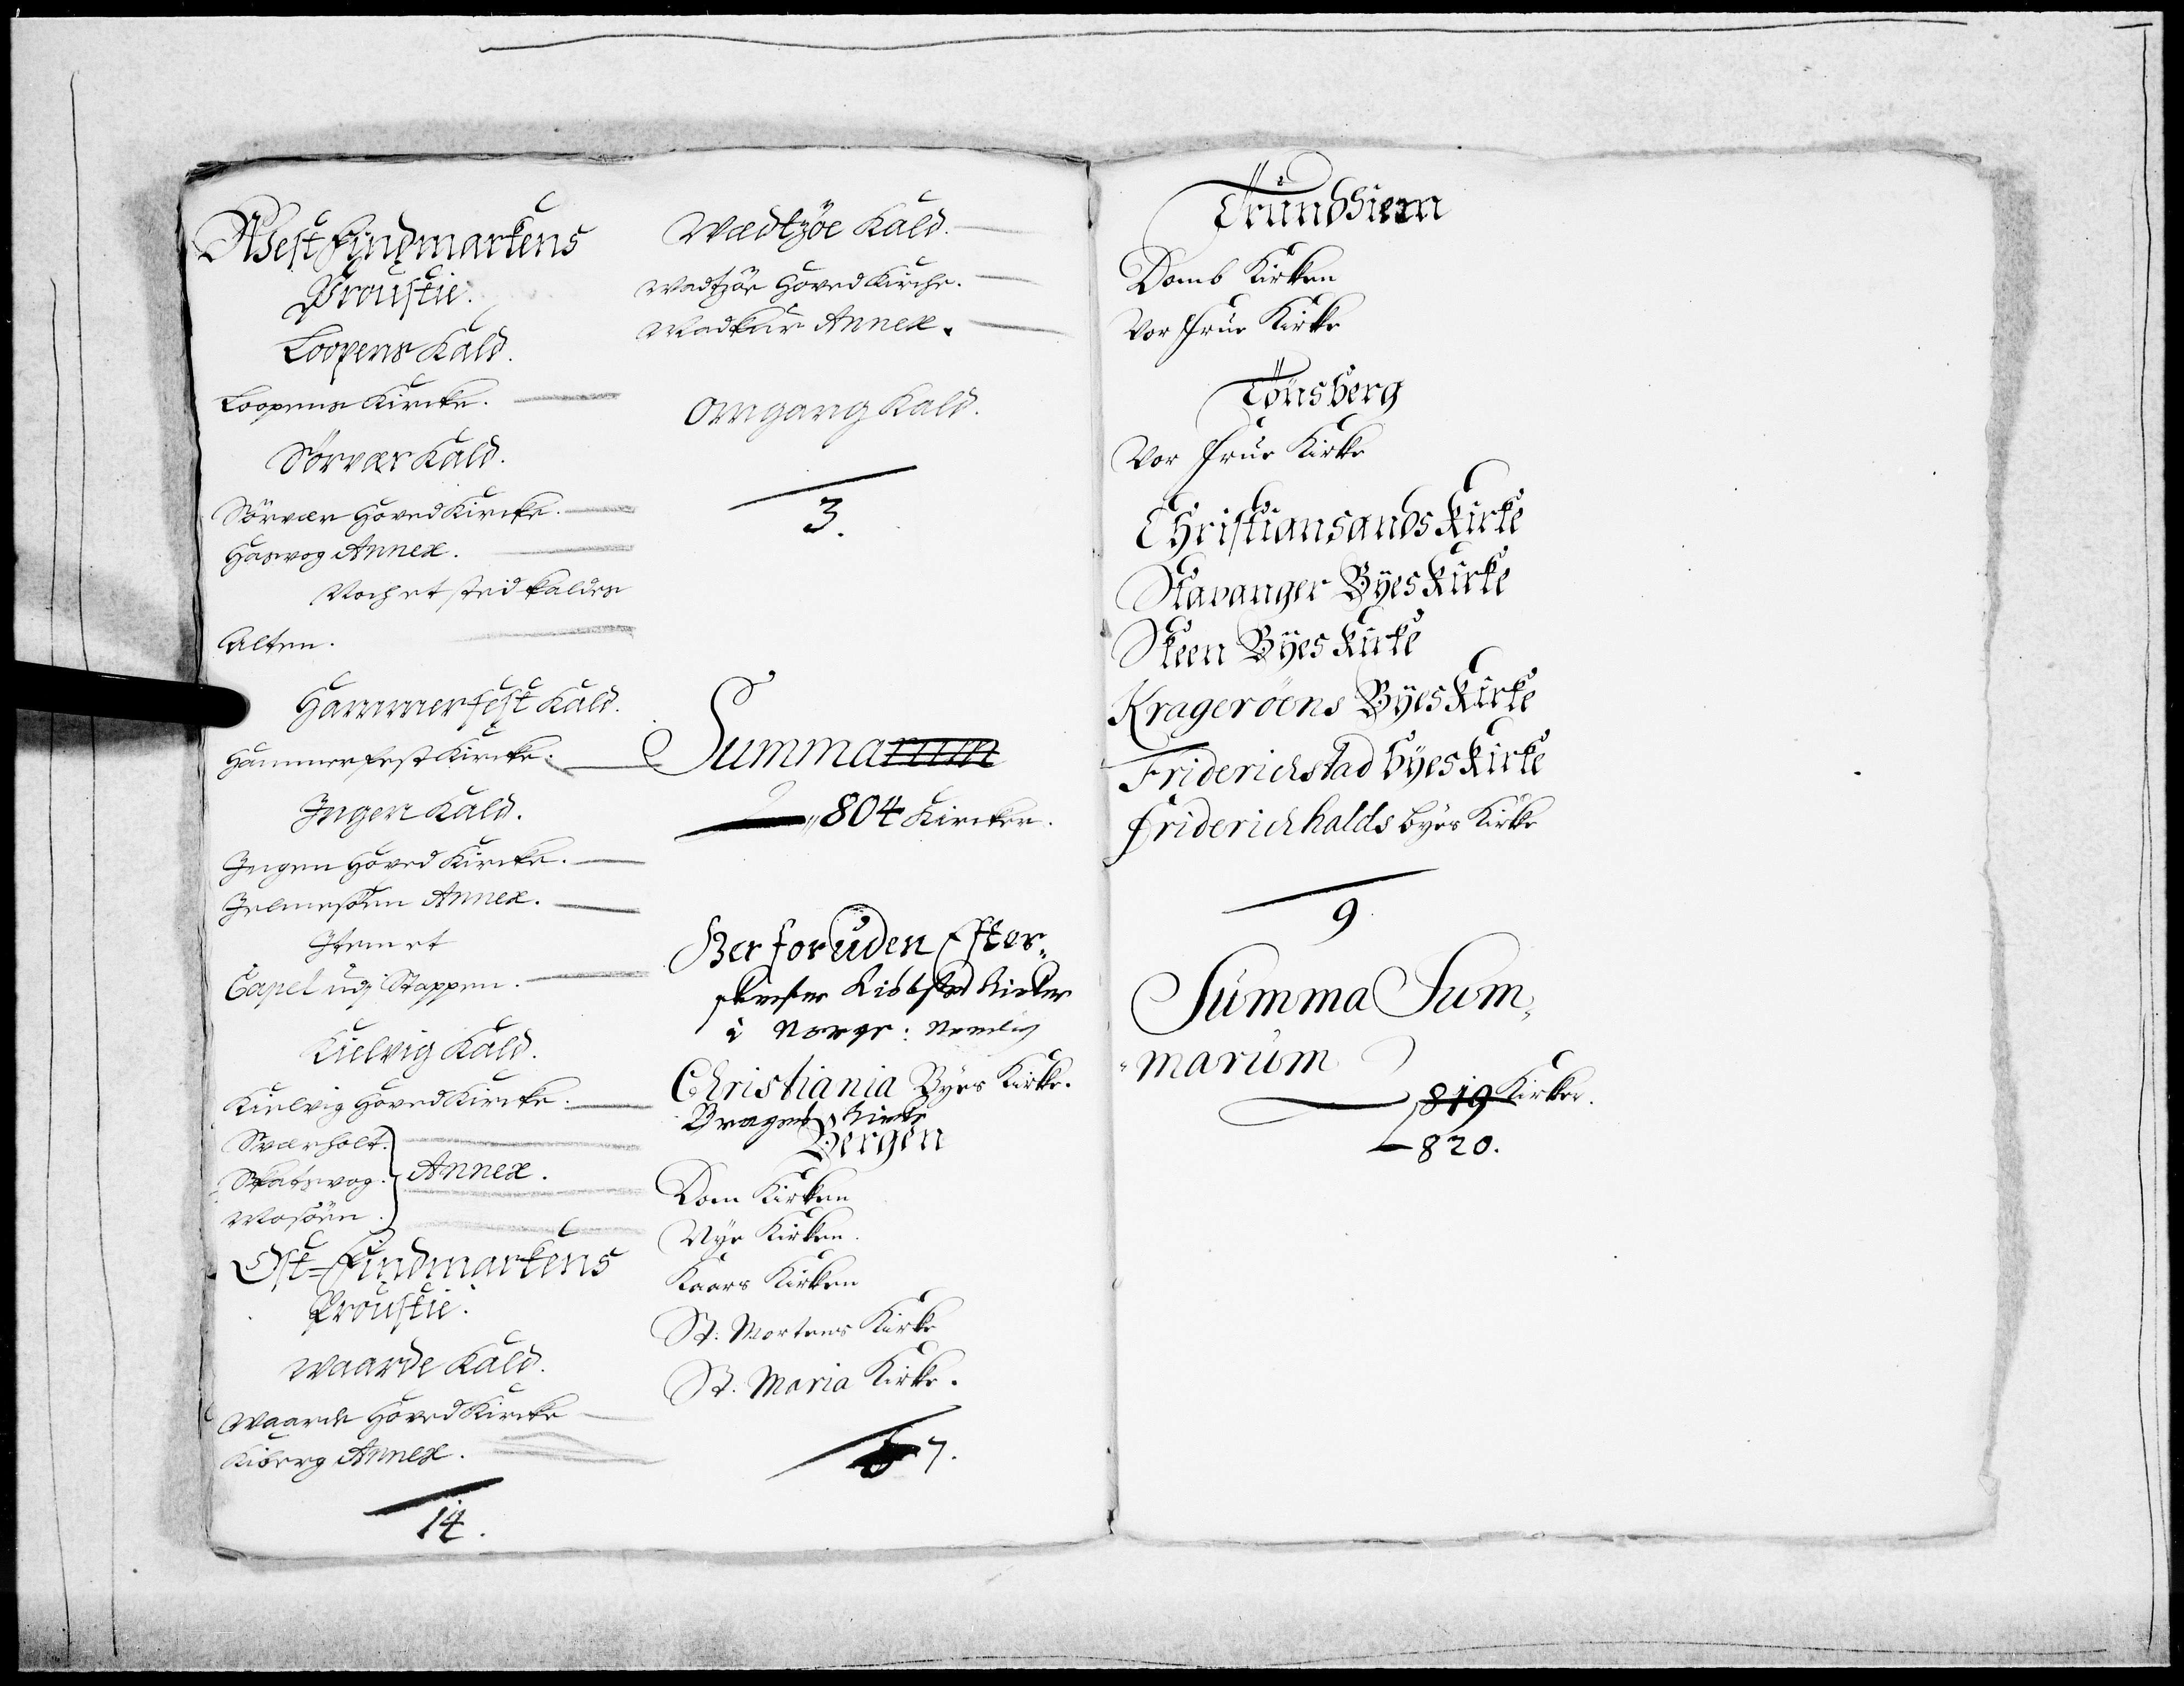 West Findmarkens
Proustie.
Loopens Kald.
Loopens Kircke.
Sörvær Kald.
Sörvær Hoved Kircke.
Hasvog Annex.
Noch et sted kaldes
Alten.
Hammerfest Kald.
Hammerfest Kircke.
Ingen Kald.
Ingen Hoved Kircke.
Jelmesöen Annex.
Item et
Capel udj Stappen.
Kielvig Kald.
Kielvig Hoved Kircke.
Sværholt.
Skatsvog. Annex.
Mosöen.
Ost-Findmarkens
Proustie.
Waarde Kald.
Waarde Hoved Kircke
Kiberg Annex.
14.
Wadtzöe Kald.
Wadtzöe Hoved Kirche.
Madkur Annex.
Omgang Kald.
3.
Summarum
804 Kircker.
Her foruden Efter„
skrefne Kiöbsted Kircker
i Norge: Nemlig
Christiania Byes Kirke.
Bragnes Kirke
Bergen
Dom Kirken
Nye Kirken.
Kaars Kirken
St: Mortens Kirke
St. Maria Kirke.
7.
Trundhiem
Domb Kirken
Vor Frue Kirke
Tönsberg
Vor Frue Kirke
Christiansands Kirke
Stavanger Byes Kirke
Skeen Byes Kirke
Krageröens Byes Kirke
Friderichstad byes Kirke
Friderichhalds byes Kirke
9
Summa Sum„
„marum
819 Kirker.
820.